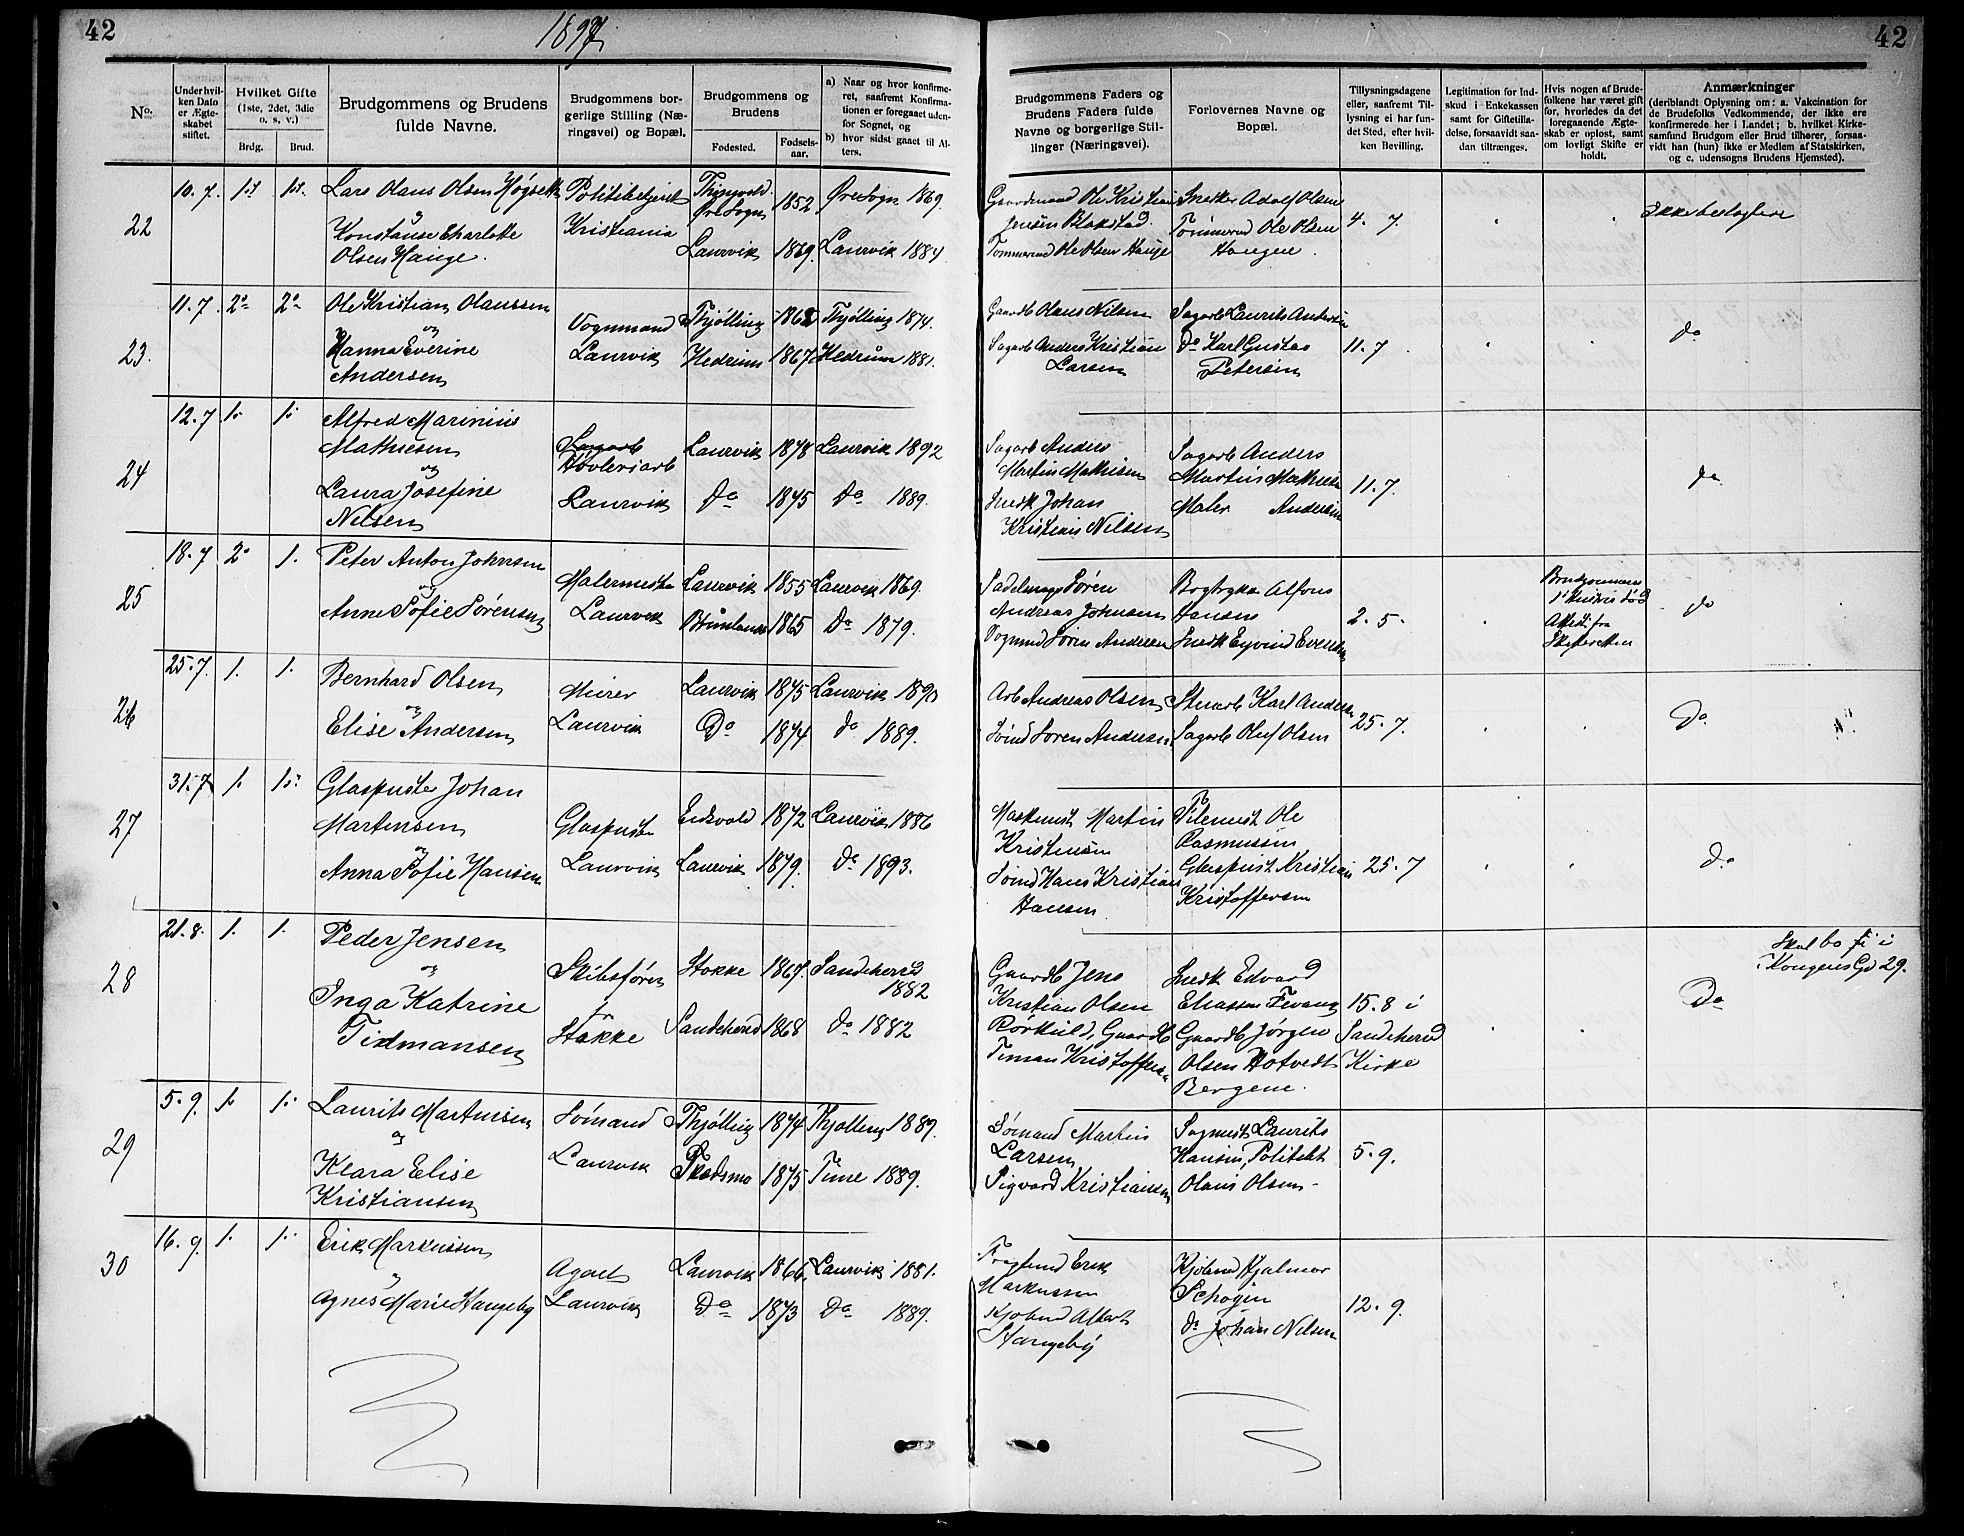 42
1897
42
No.
Under hvilken Dato er Ægteskabet stiftet.
Hvilket Gifte (1ste, 2det, 3die o. s. v.)
Brdg.
Brud.
Brudgommens og Brudens fulde Navne.
Brudgommens borgerlige Stilling (Næringsvei) og Bopæl.
Brudgommens og Brudens
Fødested.
Fødselsaar.
a) Naar og hvor konfirmeret, saafremt Konfirmationen er foregaaet udenfor Sognet, og
b) hvor sidst gaaet til Alters.
Brudgommens Faders og Brudens Faders fulde Navne og borgerlige Stillinger (Næringsvei).
Forlovernes Navne og Bopæl.
Tillysningsdagene eller, saafremt Tillysning ei har fundet Sted, efter hvilken Bevilling.
Legitimation for Indskud i Enkekassen samt for Giftetilladelse, forsaavidt saadan tiltrænges.
Hvis nogen af Brudefolkene har været gift før, hvorledes da det foregaaende Ægteskab er opløst, samt om lovligt Skifte er holdt.
Anmærkninger
(deriblandt Oplysning om: a. Vakcination for de Brudefolks Vedkommende, der ikke ere konfirmerede her i Landet; b. hvilket Kirkesamfund Brudgom eller Brud tilhører, forsaavidt han (hun) ikke er Medlem af Statskirken, og c. udensogns Brudens Hjemsted).
22
10. 7.
Lars Olaus Olsen Høgseth
og
Konstanse Charlotte
Olsen Hauge.
Politibetjent
Kristiania
Øre Sogn
1852
Øre Sogn 1869.
Laurvik 1869. Laurvik 1884
Gaardmand Ole Kristian
Jensen Blakstad.
Tømmermd Ole Olsen Hauge
Snekker Adolf Olsen
Tømmermd Ole Olsen
Haugen.
4. 7.
Ikke beslægtede
23.
11. 7 2° 2°
Ole Kristian Olaussen
og
Hanna Everine
Andersen
Vognmand
Laurvik
Thjølling Thjølling 1874.
Hedrum 1867 Hedrum 1881.
Gaardb Olaus Nilsen
Sagarb Anders Kristian
Larsen
Sagarb Laurits Andersen
Do Karl Gustav
Petersen
11. 7
do
24
12. 7
Alfred Marinius
Mathiesen
og
Laura Josefine
Nelsen
Sagarb
Høvleriarb
Laurvik
Laurvik 1878 Laurvik 1892
Do 1875 Do 1889.
Sagarb Anders
Martin Mathisen
Snedk Johan
Kristian Nilsen
Sagarb Anders
Martin Mathisen
Maler Andersen
11. 7.
do
25
18. 7 2° 1.
Peter Anton Johnsen
og
Anne Sofie Sørensen
Malermester
Laurvik
Laurvik 1855 Laurvik 1869.
Brunlanes 1865 Do 1879.
Sadelmag Søren
Andreas Johnsen
Vognmd Søren Andersen
Bogtrykker Alfons
Hansen
Snedk Eyvind Evensen
2. 5.
Brudgommens
1ste Hustru død
Attest fra
Skifteretten
do
26
25. 7. 1. 1.
Bernhard Olsen
og
Elise Andersen
Murer
Laurvik
Laurvik 1875 Laurvik 1890
Do 1874 do 1889.
Arb Andreas Olsen
Sømd Søren Andersen
Stenarb Karl Andersen
Sagarb Oluf Olsen
25. 7.
Do
27
31. 7 1.
Glaspuster Johan
Martensen
og
Anna Sofie Hansen
Glaspuster
Laurvik
Eidsvold 1872 Laurvik 1886
Laurvik 1879. Do 1893.
Maskinist Martin
Kristensen
Sømd Hans Kristian
Hansen
Ole
Rasmussen
Glaspust Kristian
Kristoffersen
25. 7
Do
28
21. 8. 1. 1.
Peder Jensen
og
Inga Katrine
Tidmansen
Skibsfører
fr
Stokke
Stokke Sandeherred
1882
Sandeherred 1868 do 1882
Gaardb Jens
Kristian Olsen
Rørkuld, Gaardb
Timan Kristoffersen
Snedk Edvard
Eliassen Fevang
Gaardb Jørgen
Olsen Hotvedt
Bergene.
15. 8 i
Sandeherred
Kirke
Skal bo i
Kongens Gd 29.
Do
29
5. 9.
Laurits Martinsen
og
Klara Elise
Kristiansen
Sømand
Laurvik
Thjølling 1874 Thjølling 1889.
Skedsmo 1875 Time 1889.
Sømand Martin
Larsen
Sigvard Kristiansen
Sagmest Laurits
Hansen, Politibt
Olaus Olsen
5. 9.
30
16. 9. 1.
Erik Markussen
og
Agnes Marie Hangeby
Agent
Laurvik
Laurvik 1866. Laurvik 1881.
Do 1873 Do 1889.
Fragtmd Erik
Markussen
Kjøbmd Albert
Hangeby
Kjøbmd Hjalmar
Schøgen
Do Johan Nelsen
12. 9.